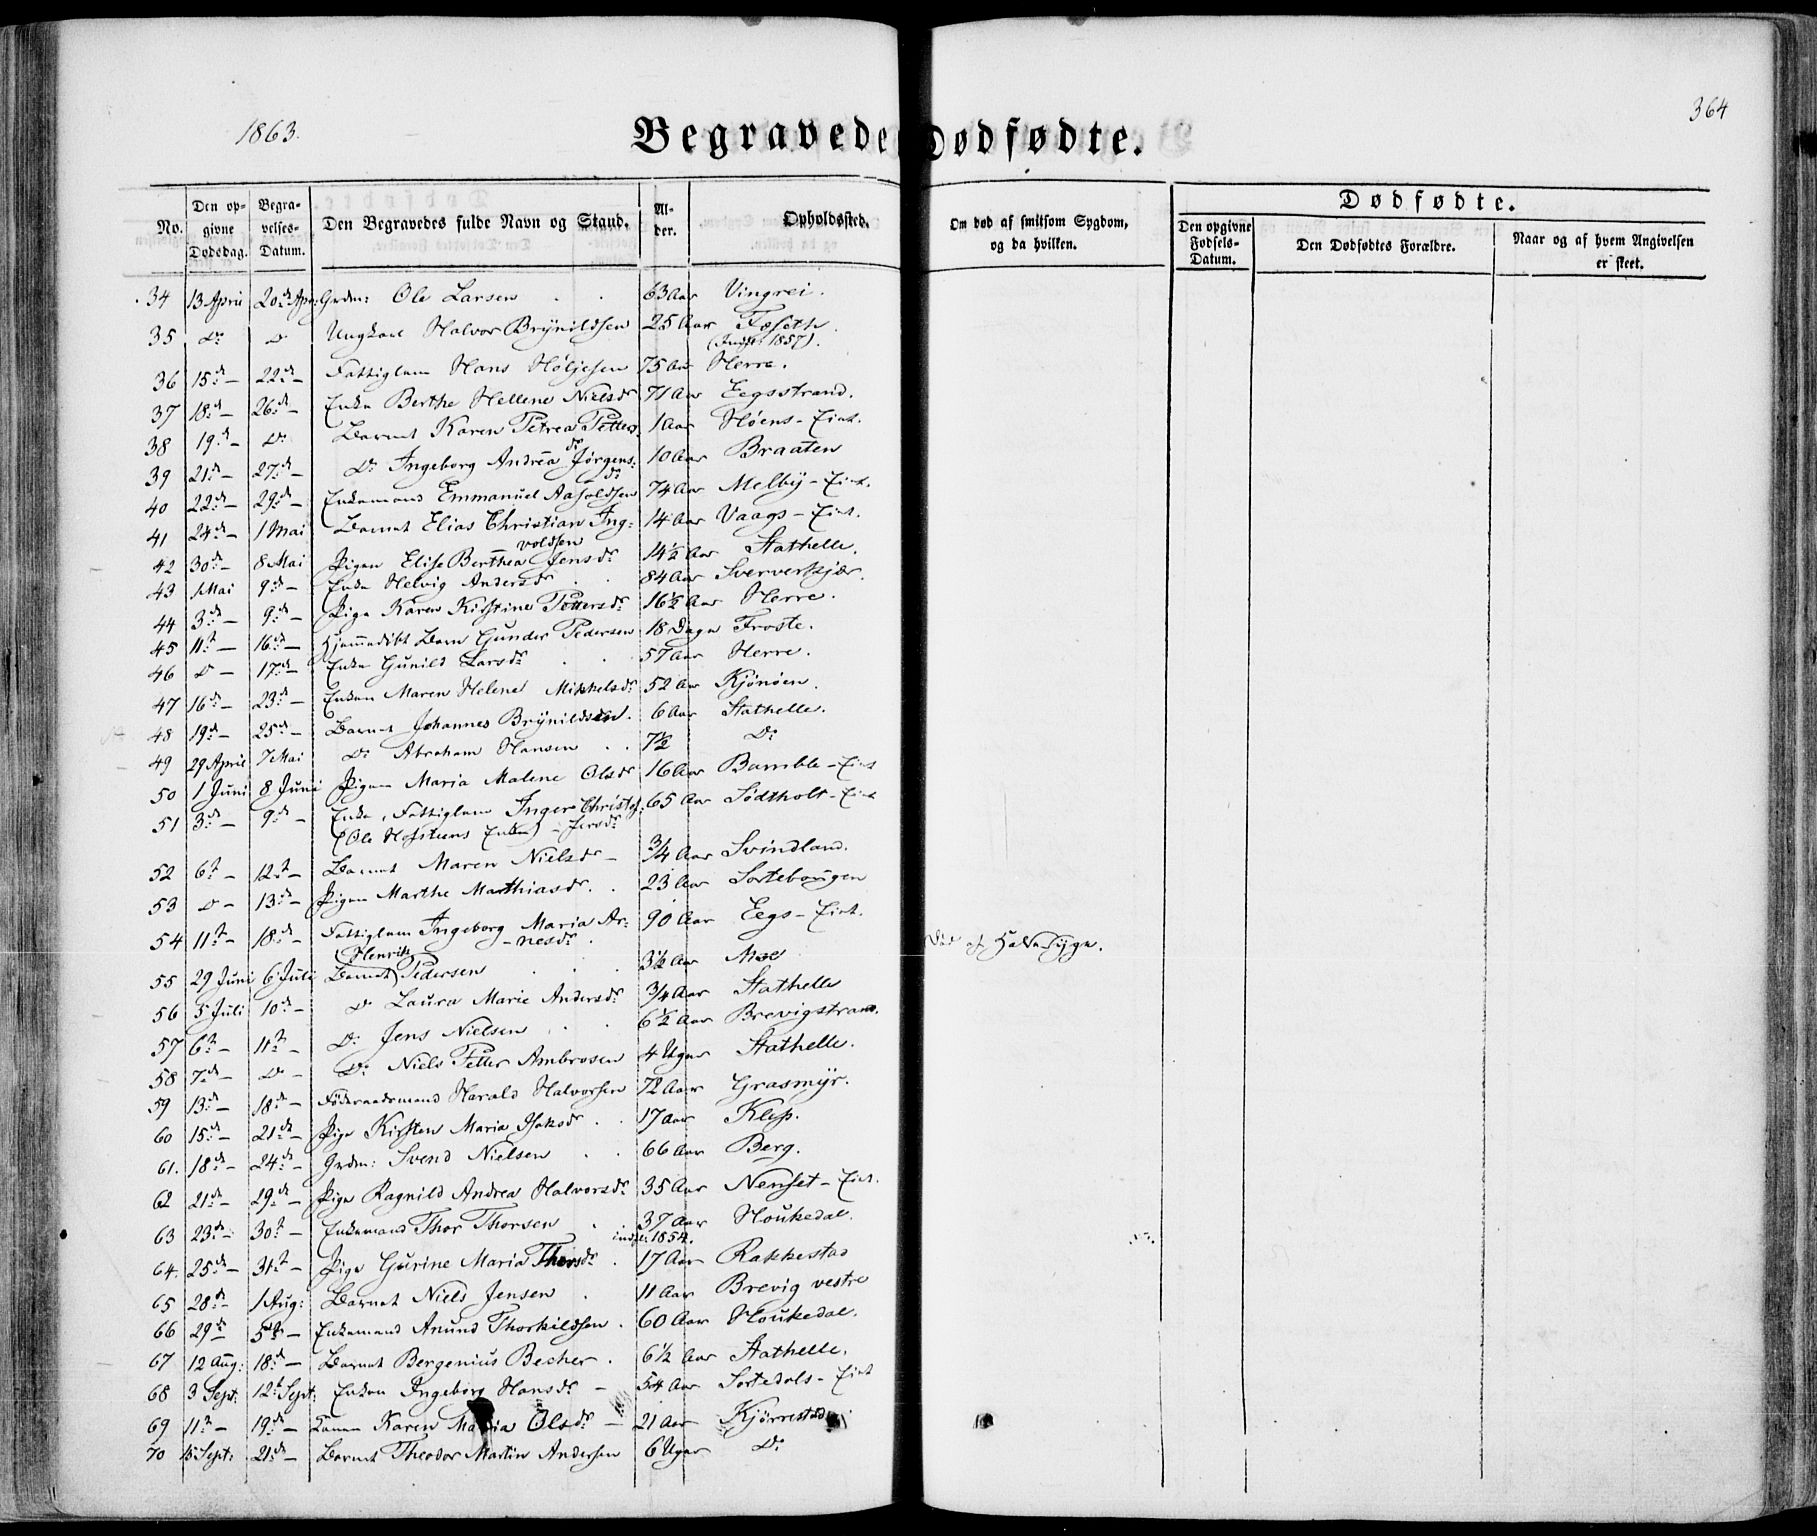 1863.
364
Begravede Dødfødte.
No. Den opgivne Dødsdag. Begravelses-Datum. Den Begravedes fulde Navn og Stand. Alder. Opholdssted. Om død af smitsom Sygdom, og da hvilken.
Dødfødte.
Den opgivne Fødsels-Datum. Den Dødfødtes Forældre. Naar og af hvem Angivelsen er skeet.
34 13 April 20de Apr: Grdm: Ole Larsen 63 Aar Vingrei.
35 Do D Ungkarl Halvor Brynildsen 25 Aar Foseth.
(Indst: 1857).
36 15de — 22de — Fattiglem Hans Høljesen 75 Aar Herre.
37 18de — 26de — Enke Berthe Hellene Nielsdr 71 Aar Eegsstrand.
38 19de — Do Barnet Karen Petrea Petters: dr 1 Aar Høens-Eiet.
39 21de — 27de — Do Ingeborg Andrea Jørgens: dr 10 Aar Braaten
40 22de — 29de — Enkemand Emmanuel Aasoldsen 74 Aar Melby-Eiet.
41 24de — 1 Mai Barnet Elias Christian Ing: 14 Aar Vaags-Eiet.
voldsen
42 30de — 8 Mai Pigen Elise Berthea Jensdr 14½ Aar Stathelle.
43 1 Mai 9de — Enke Helvig Andersdr 84 Aar Sververkjær.
44 3de — 9de — Pige Karen Kirstine Pettersdr 16½ Aar Herre.
45 11te — 16de — Hjemmedøbt Barn Gunder Pedersen 18 Dage Froste.
46 D — 17de — Enke Gunild Larsdr 57 Aar Herre.
47 16de — 23de — Enken Maren Helene Mikkelsdr 52 Aar Kjønøen.
48 19de — 25de — Barnet Johannes Brynildsen. 6 Aar Stathelle.
49 29 April 7 Mai Do Abraham Hansen 7½ Do
50 1 Juni 8 Juni Pigen Maria Malene Olsdr 16 Aar Bamble-Eiet
51 3de — 9de — Enke, Fattiglem Inger Christof: 65 Aar Sødtholt-Eiet
(Ole Hofstuens Enke) — Jensdr
52 6te — 12te — Barnet Maren Nielsdr — ¾ Aar Svindland.
53 D — 13de — Pigen Marthe Mathiasdr. 23 Aar Sortebougen
54 11te — 18de — Fattiglem Ingeborg Maria Ar: 90 Aar Eegs-Eiet.
-nesdr.
55 29 Juni 6 Juli Barnet (Henrik) Pedersen 3½ Aar Moe Død af Halssyge.
56 5 Juli 10de — D Laura Marie Andersdr ¾ Aar Stathelle
57 6te — 11te — Do Jens Nielsen 6½ Aar Brevigstrand.
58 7de — D — Do Niels Petter Ambrosen 4 Uger Stathelle.
59 13de — 18de — Føderaadsmand Harald Halvorsen 72 Aar Grasmyr.
60 15de — 21de — Pige Kirsten Maria Isaksdr 17 Aar Klep.
61. 18de — 24de — Grdm: Svend Nielsen 66 Aar Berg.
62 21de — 29de — Pige Ragnild Andrea Halvorsdr 35 Aar Nenset-Eiet.
63 23de — 30te — Enkemand Thor Thorsen 37 Aar Houkedal.
indst: 1854.
64. 25de — 31te — Pige Gurine Maria Thorsdr 17 Aar Rakkestad
65 28de — 1 Aug: Barnet Niels Jensen 11 Aar Brevig vestre
66 29de 5te — Enkemand Anund Thorkildsen. 60 Aar Houkedal.
67 12 Aug: 18de — Barnet Bergenius Becher. 6½ Aar Stathelle.
68 3 Sept: 12te Sept: Enken Ingeborg Hansdr — 54 Aar Sortedals-Eiet
69 11te — 19de — Karen Maria Olsdr — 21 Aar Kjørrestad
70 15 Sept: 21de — Barnet Theodor Martin Andersen 6 Uger Do